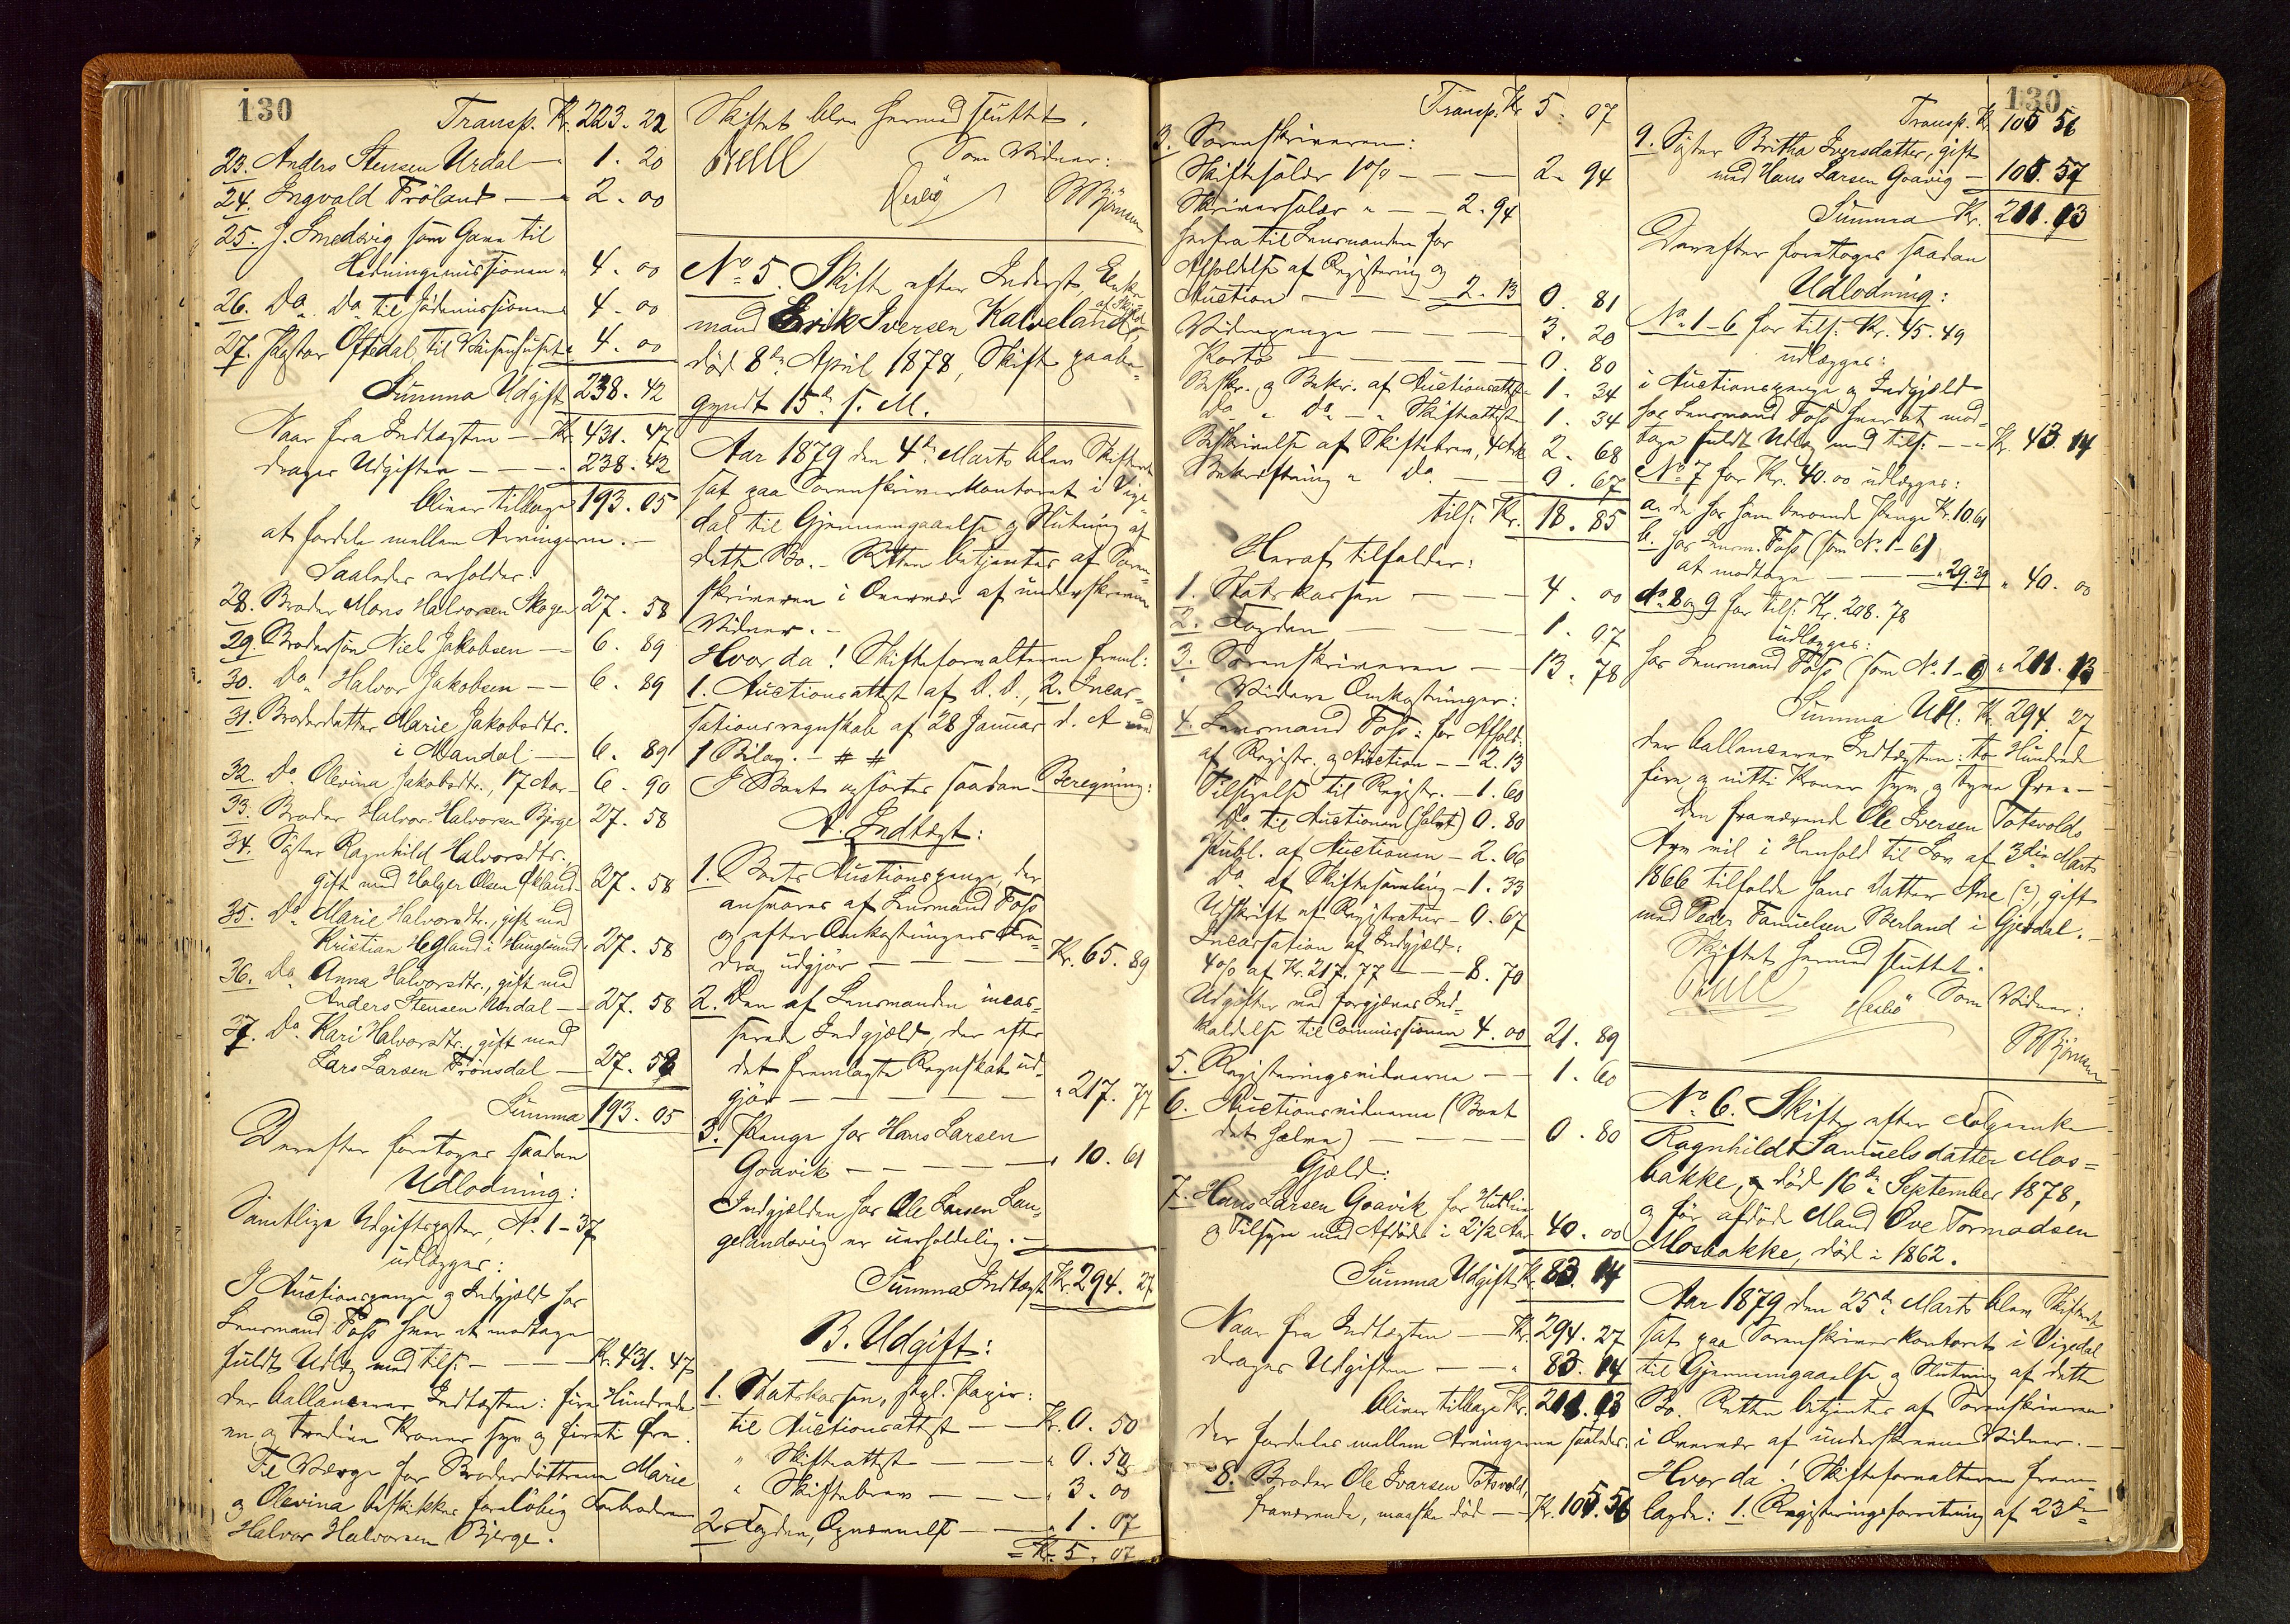 130
Transp. Kr. 223. 22
23. Anders Stensen Urdal — " 1. 20
24. Ingvald Fröland — — " 2. 00
25. J. Smedsvig som Gave til
Hedningemissionen " 4. 00
26. Do. Do. til Jödemissionen " 4. 00
27. Pastor Oftedal, til Vaisenhuset " 4. 00
Summa Udgift 238. 42
Naar fra Indtægten — Kr. 431. 47
drages Udgiften — — — " 238. 42
bliver tilbage 193. 05
at fordele mellem Arvingerne. —
Saaledes erholder:
28. Broder Mons Halvorsen Skogen 27. 58
29. Brodersön Niels Jakobsen — 6. 89
30. Do. Halvor Jakobsen — — 6. 89
31. Broderdatter Marie Jakobsdtr.
i Mandal — 6. 89
32. Do. Olevina Jakobsdtr., 17 Aar — 6. 90
33. Broder Halvor Halvorsen Bjerge 27. 58
34. Söster Ragnhild Halvorsdtr.,
gift med Holger Olsen Økland 27. 58
35. Do. Marie Halvorsdtr., gift med
Kristian Hegland i Haugesund 27. 58
36. Do. Anna Halvorsdtr., gift med
Anders Stensen Urdal — 27. 58
37. Do. Kari Halvorsdtr., gift med
Lars Larsen Frönsdal — 27. 58
Summa 193. 05
Derefter foretoges saadan
Udlodning:
Samtlige Udgiftsposter, No. 1-37
udlægges:
I Auctionspenge og Indgjæld hos
Lensmand Foss hver at modtage
fuldt Udlæg med tils. — — — Kr. 431. 47
der ballancerer Indtægten: fire Hundrede
en og tredive Kroner syv og firti Øre.
Til Værge for Broderdöttrene Marie
og Olevina beskikkes foreløbig Farbroderen
Halvor Halvorsen Bjerge.
Skiftet blev hermed sluttet.
Som Vidner:
No. 5. Skifte efter Inderst, Enke-
mand Erik Iversen Kalveland,
död 8de April 1878, Skift paabe-
gyndt 15de s. M.
Aar 1879 den 4de Marts blev Skifteret
sat paa Sorenskriverkontoret i Vige-
dal til Gjennemgaaelse og Slutning af
dette Bo. — Retten betjentes af Soren-
skriveren i Overvær af underskrevne
Vidner. —
Hvorda! Skifteforvalteren freml:
1. Auctionsattest af D. D., 2. Incas-
sationsregnskab af 28 Januar d. A. med
1 Bilag. — # #
I Boet opførtes saadan Beregning:
A. Indtægt:
1. Boets Auctionspenge, der
ansvares af Lensmand Foss
og efter Omkostningers Fra-
drag udgjør — — — — Kr. 65. 89
2. Den af Lensmanden incas-
serede Indgjæld, der efter
det fremlagte Regnskab ud-
gjör — — — — — " 217. 77
3. Penge hos Hans Larsen
Goavik — — — — — " 10. 61
Indgjælden hos Ole Larsen Lan-
gelandsvig er uerholdelig. —
Summa Indtægt Kr. 294. 27
B. Udgift:
1. Statskassen, stpl. Papir:
til Auctionsattest — — Kr. 0. 50
" Skifteattest — — — " 0. 50
" Skiftebrev — — — " 3. 00
2. Fogden, Opnævnelse — — " 1. 07
= Kr. 5. 07
130
Transp. Kr. 5. 07
3. Sorenskriveren:
Skiftesalær 1% — — — 2. 94
Skriversalær " — — 2. 94
herfra til Lensmanden for
Afholdelse af Registering og
Auction — — — 2. 13 0. 81
Vidnepenge — — — — 3. 20
Porto — — — — 0. 80
Beskr. og Bekr. af Auctionsattest 1. 34
Do. " Do. — " Skifteattest 1. 34
Beskrivelse af Skiftebrev, 4 Ark 2. 68
Bekræftning " Do. — — 0. 67
tils. Kr. 18. 85
Heraf tilfalder:
1. Statskassen — — — 4. 00
2. Fogden — — — 1. 07
3. Sorenskriveren — — 13. 78
Videre Omkostninger:
4. Lensmand Foss: for Afhold.
af Registr. og Auction — — 2. 13
Tilsigelse til Registr. — 1. 60
Do. til Auctionen (halvt) 0. 80
Publ. af Auctionen — 2. 66
Do. af Skiftesamling — 1. 33
Udskrift af Registratur — 0. 67
Incassation af Indgjæld:
4% af Kr. 217. 77 — — 8. 70
Udgifter med forgjæves Ind-
kaldelse til Commissionen 4. 00 21. 89
5. Registeringsvidnerne — — 1. 60
6. Auctionsvidnerne (Boet
det halve) — — — — 0. 80
Gjæld:
7. Hans Larsen Goavik for Husly
og Tilsyn med Afdöde i 2 1/2 Aar 40. 00
Summa Udgift Kr. 83. 14
Naar fra Indtægten — Kr. 294. 27
drages Udgiften — — " 83. 14
bliver tilbage Kr. 211. 13
der fordeles mellem Arvingerne saaledes:
8. Broder Ole Iversen Totsvold,
fraværende, maaske död — Kr. 105. 56
Transp. Kr. 105 56
9. Söster Britha Iversdatter, gift
med Hans Larsen Goavig — 105. 57
Summa Kr. 211. 13
Derefter foretoges saadan
Udlodning:
No. 1-6 for tils. Kr. 45. 49
udlægges:
i Auctionspenge og Indgjæld
hos Lensmand Foss hver at mod-
tage fuldt Udlæg med tils. — — Kr. 43. 14
No. 7 for Kr. 40. 00 udlægges:
a. de hos ham beroende Penge Kr. 10. 61
b. hos Lensm. Foss (som No. 1-6)
at modtage — — — " 29. 39 " 40. 00
No. 8 og 9 for tils. Kr. 208. 78
udlægges:
hos Lensmand Foss (som No. 1-6) " 211. 13
Summa Udl. Kr. 294. 27
der ballancerer Indtægten: to Hundrede
fire og nitti Kroner syv og tyve Øre —
Den fraværende Ole Iversen Totsvolds
Arv vil i Henhold til Lov af 3die Marts
1866 tilfalde hans Datter Ane (?), gift
med Peder Samuelsen Berland i Gjesdal. —
Skiftet hermed sluttet.
Som Vidner:
No. 6. Skifte efter Folgeenke
Ragnhild Samuelsdatter Mos-
bakke, död 16de September 1878,
og før afdöde Mand Ove Tormodsen
Mosbakke, död i 1862.
Aar 1879 den 25de Marts blev Skifteret
sat paa Sorenskriverkontoret i Vigedal
til Gjennemgaaelse og Slutning af dette
Bo. Retten betjentes af Sorenskriveren
i Overvær af underskrevne Vidner. —
Hvorda! Skifteforvalteren frem-
lagde: 1. Registeringsforretning af 23de